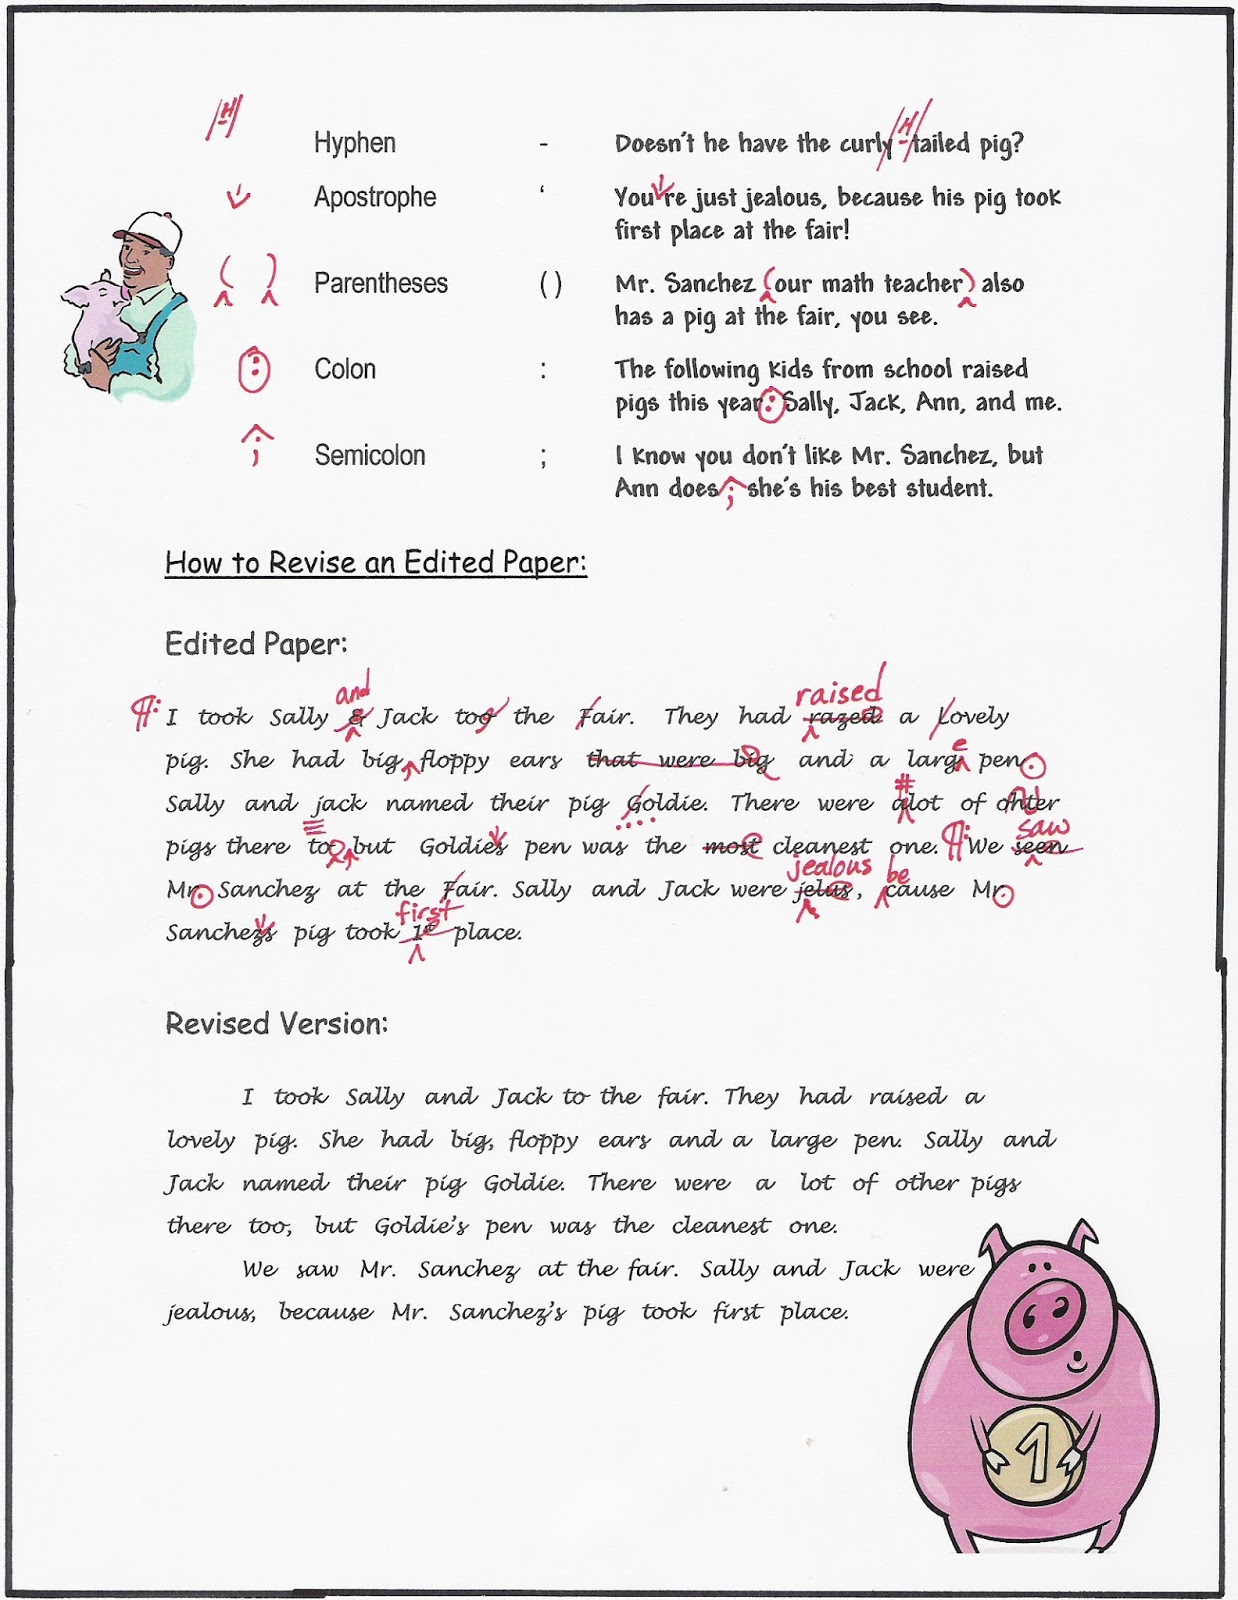 H
Hyphen - Doesn't he have the curly-tailed pig?
H
Apostrophe ‘ You're just jealous, because his pig took
first place at the fair!
( ) Parentheses ( ) Mr. Sanchez (our math teacher) also
has a pig at the fair, you see.
: Colon : The following kids from school raised
pigs this year: Sally, Jack, Ann, and me.
; Semicolon ; I know you don't like Mr. Sanchez, but
Ann does; she's his best student.
How to Revise an Edited Paper:
Edited Paper:
and raised
¶: I took Sally & Jack too the Fair. They had razed a Lovely
e
pig. She had big floppy ears that were big and a larg pen.
#
Sally and jack named their pig Goldie. There were alot of ohter
saw
pigs there to but Goldies pen was the most cleanest one. ¶: We seen
jealous be
Mr. Sanchez at the Fair. Sally and Jack were jelus, cause Mr.
first
Sanchezs pig took 1st place.
Revised Version:
I took Sally and Jack to the fair. They had raised a
lovely pig. She had big, floppy ears and a large pen. Sally and
Jack named their pig Goldie. There were a lot of other pigs
there too, but Goldie's pen was the cleanest one.
We saw Mr. Sanchez at the fair. Sally and Jack were
jealous, because Mr. Sanchez's pig took first place.
1